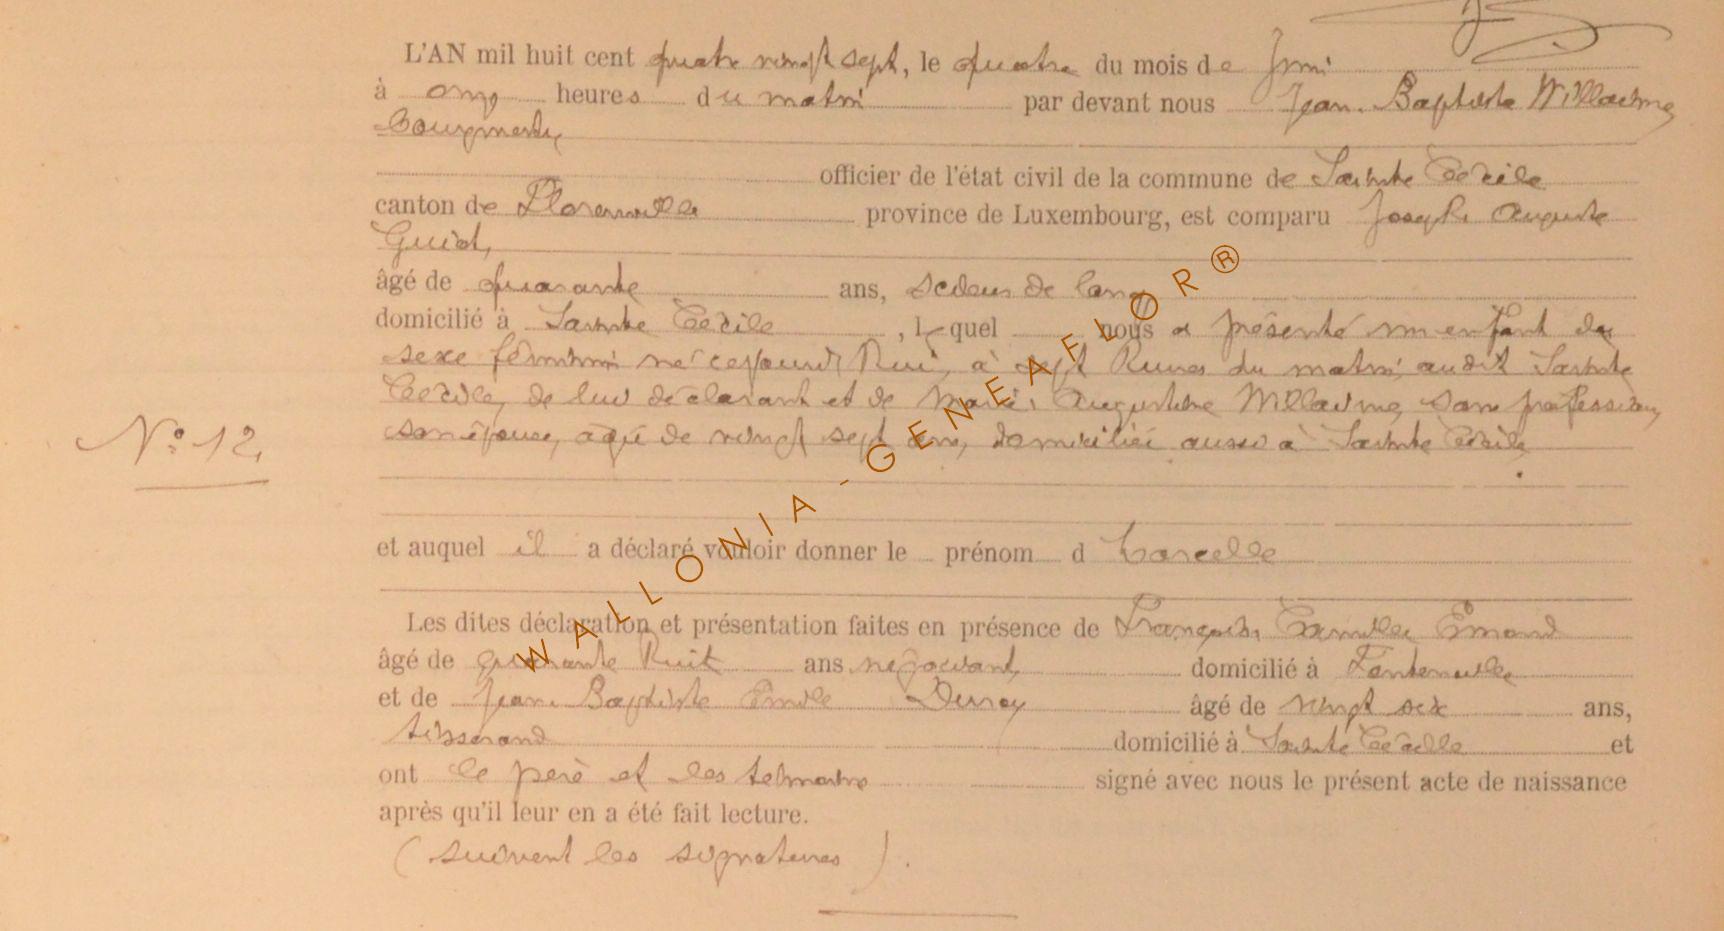 L'AN mil huit cent quatre vingt sept, le quatre du mois de Juin
à onze heures du matin par devant nous Jean Baptiste Willaime
Bourgmestre,
officier de l'état civil de la commune de Sainte Cécile
canton de Florenville province de Luxembourg, est comparu Joseph Auguste
Guiot,
âgé de quarante ans, scieur de long
domicilié à Sainte Cécile, lequel nous a présenté un enfant du
sexe féminin né cejourd'hui, à sept heures du matin, audit Sainte
Cécile, de lui déclarant et de Marie Augustine Willaime, sans profession,
son épouse, agée de vingt sept ans, domiciliée aussi à Sainte Cécile
N° 12.
et auquel il a déclaré vouloir donner le prénom d
Les dites déclaration et présentation faites en présence de François Camille Emond
âgé de quarante huit ans négociant, domicilié à Fontenoille
et de Jean Baptiste Emile Duroy âgé de vingt six ans,
tisserand domicilié à Sainte Cécile et
ont le père et les témoins signé avec nous le présent acte de naissance
après qu'il leur en a été fait lecture.
(suivent les signatures).
WALLONIA-GENEAFLOR®